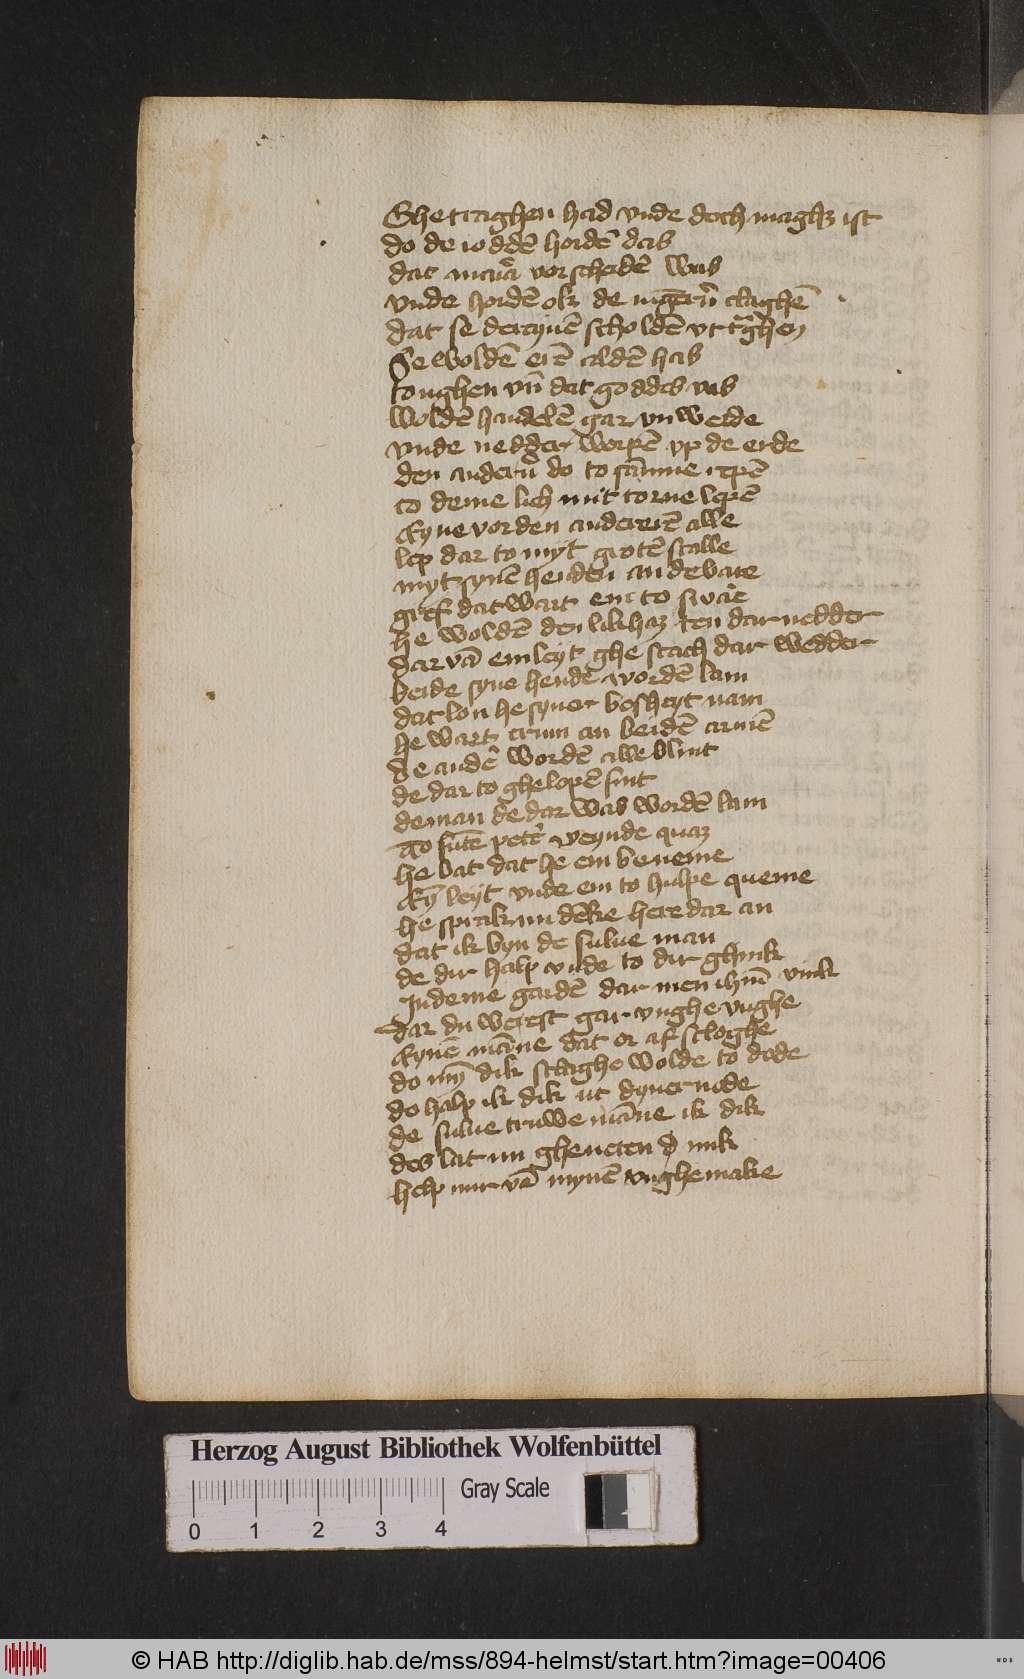 Ghetraghen had vnde doch maghz ist
do de iodden hordē das
dat marīa vorschedē was
vnde hordē ok de iūgerń claghē
dat se der iynē scholdē vt traghen
Se woldē eiē aldē has
toughen vn̄ dat goddes vas
Woldē handelē gar vnwerde
vnde nedder worpē vp de erde
den anderń do to sāmne repē
to deme lich mit torne lepē
Eyne vor den anderen alle
lep dar to myt grotē scalle
myt synē henden an de bare
gref dat wart em to sware
he woldē den likham ten dar nedder
dar vā em leyt ghe scach dar wedder
beide syne hende wordē lam
dat lon he syner bosheyt nam
he wart crum an beidē armē
de anderē wordē alle blint
de dar to ghelopē sint
de man de dar was wordē lam
to sūte peter veynde quam
he bat dat he em beneme
syn leyt vnde em to hulpe queme
he sprak nu dēke here dar an
dat ik byn de sulue man
de dir halp vnde to dir ghink
In deme gardē dar men ihm̄ vink
dar du werest gar vnghe vughe
Eynē māne dat or af sloghe
do mȳ dik slaghe wolde to dode
do halp ik dik ut dyner node
de sulue truwe māne ik dik
des lat mi gheneten d mik
help mir vā mynē vnghemake
Herzog August Bibliothek Wolfenbüttel
Gray Scale
0 1 2 3 4
© HAB http://diglib.hab.de/mss/894-helmst/start.htm?image=00406